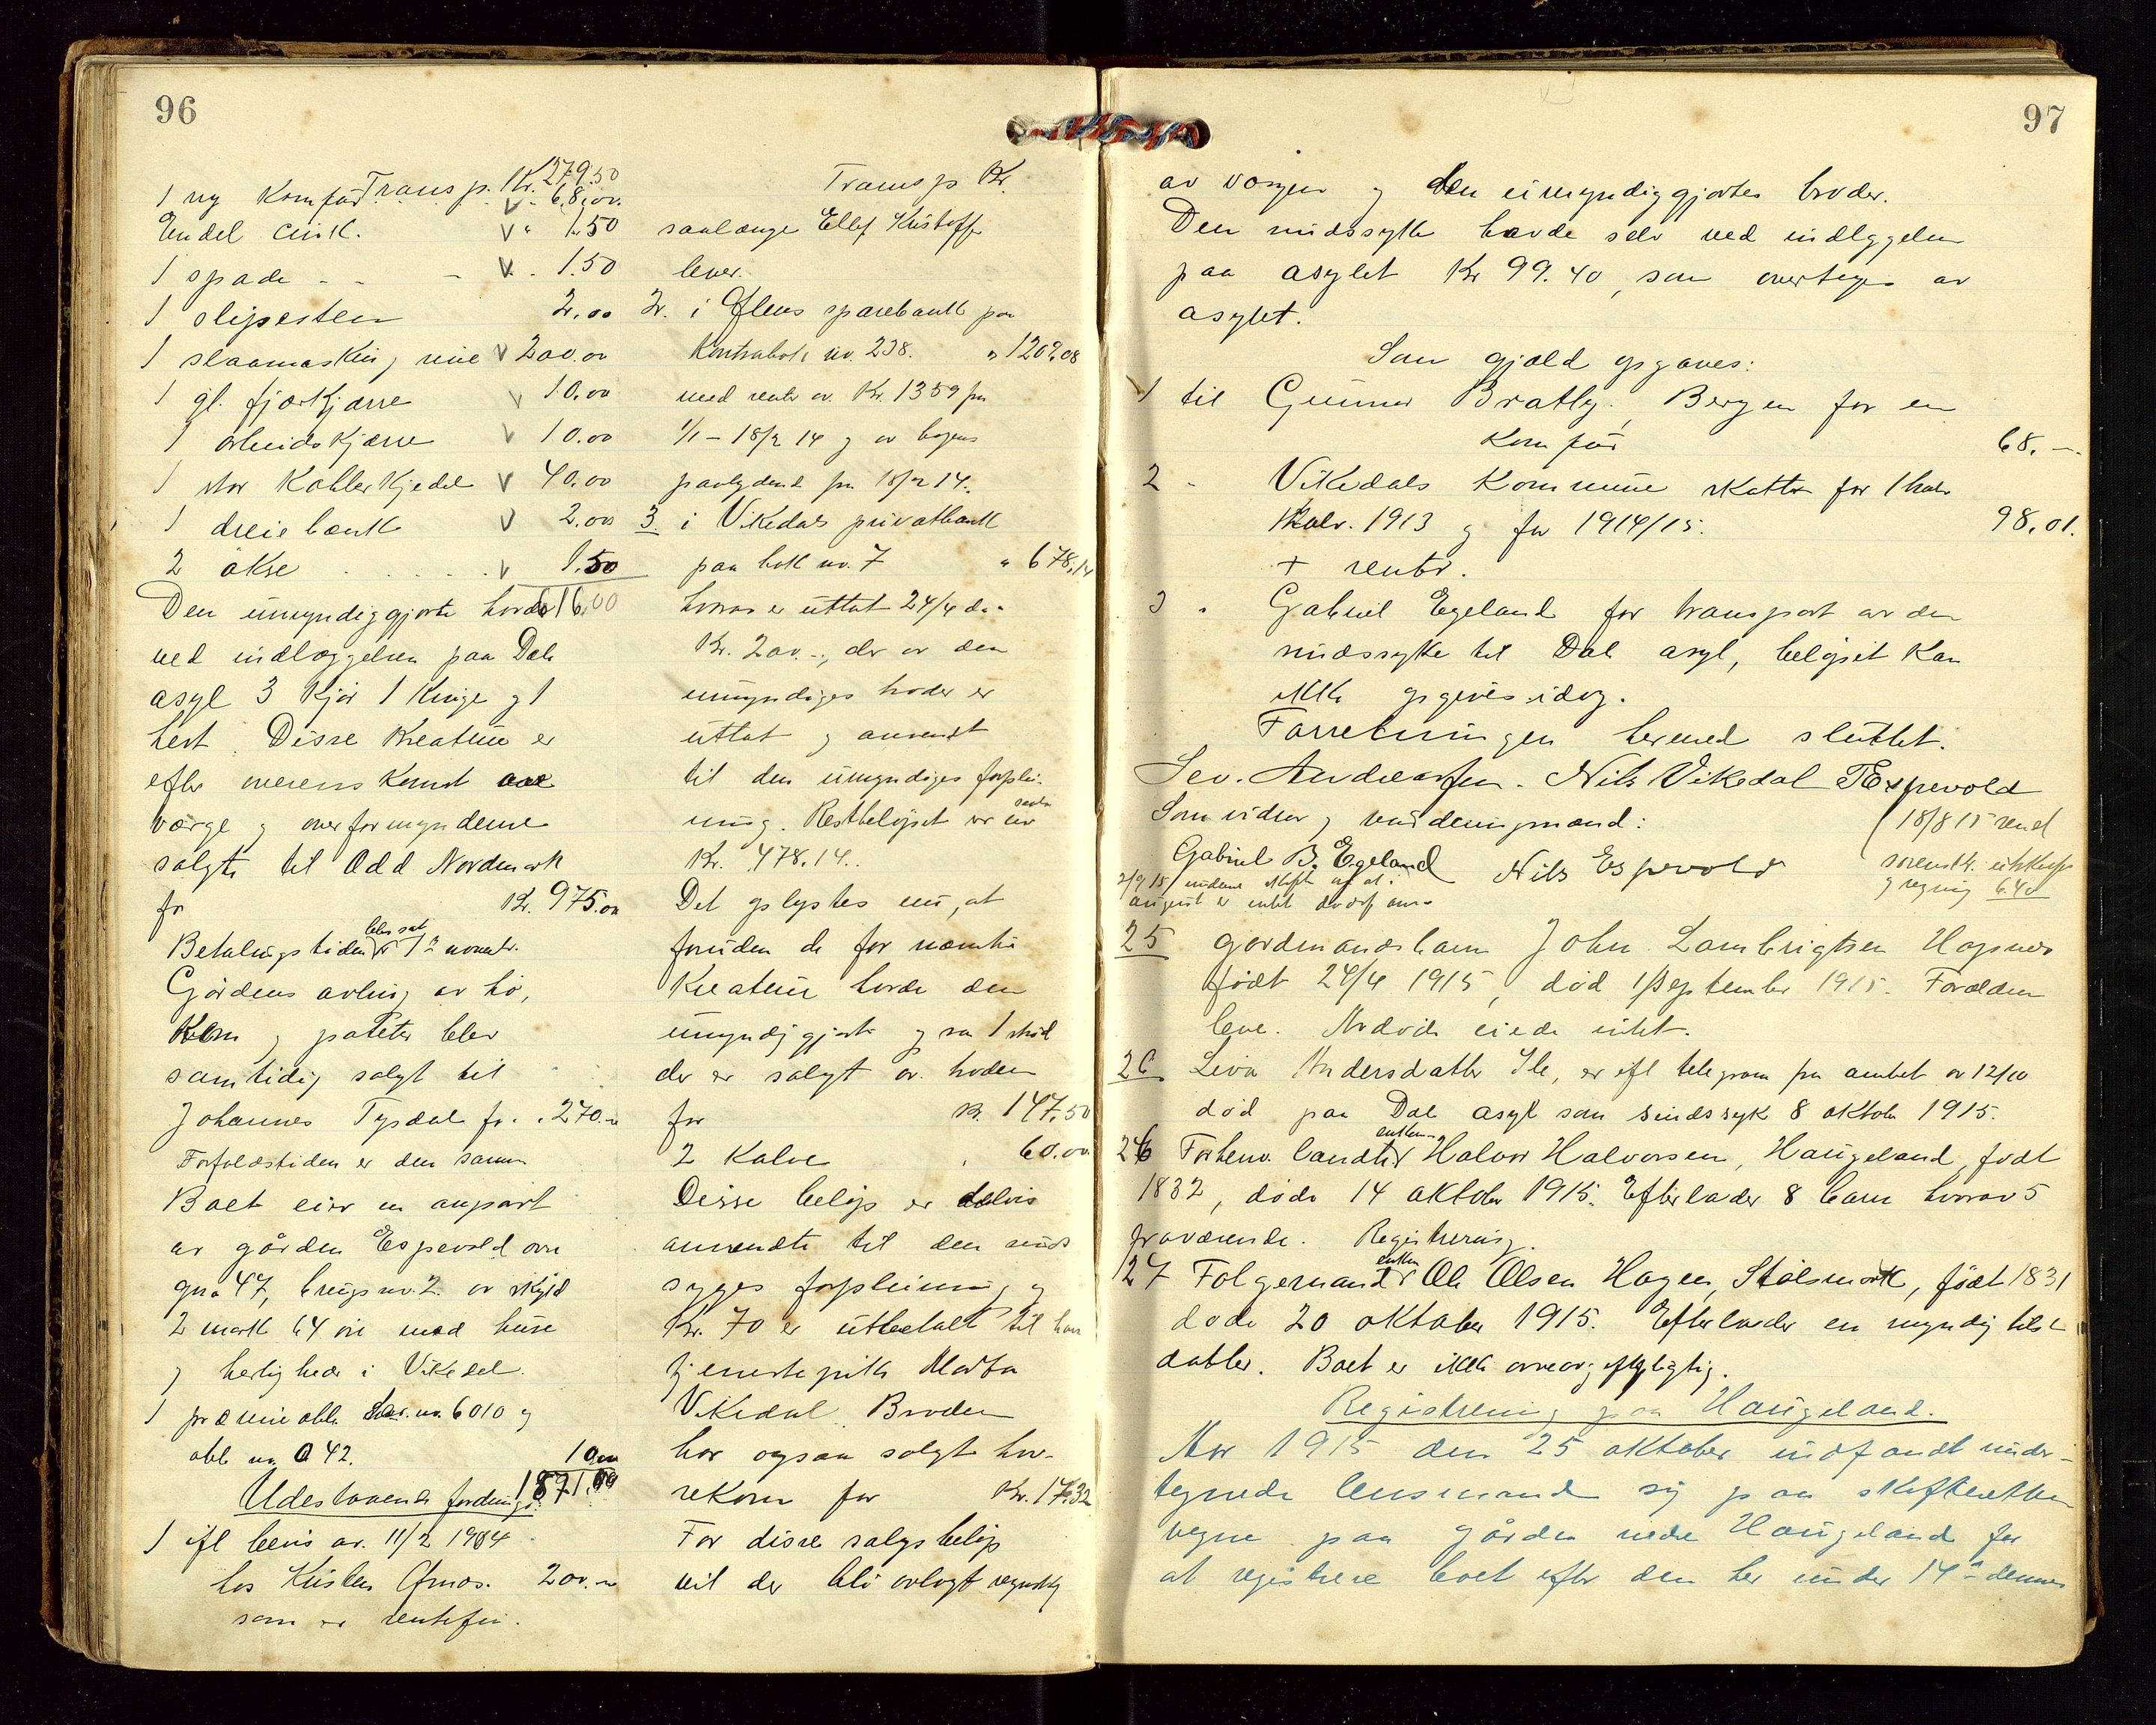 96
Transp. Kr. 279.50
1 ny komfür V " 68,00.
Endel cink. V " 1.50
1 spade - - - V . 1.50
1 slipesten 2,00
1 slaamaskin, nie V 200.00
1 gl. fjærkjærre V 10.00
1 arbeidskjærre V 10.00
1 stor kobberkjedel V 40.00
1 dreiebænk V 2.00
2 økse . . . . . V 1.50
616,00
Den ümyndiggjorte havde
ved indlæggelsen paa Dale
asyl 3 kjør 1 kvige og 1
hest. Disse kreatüre er
efter overenskomst av
værge og overformynderne
solgte til Odd Nordmark
for Kr. 975.00
Betalingstiden blev sat 1ste novembr.
Gårdens avling av hø,
korn og poteter blev
samtidig solgt til
Johannes Tysdal for . 270.-
Forfaldstiden er den samme
Boet eier en anpart
av gården Espevold øvre
gno 47, brugsnr. 2. av skyld
2 mark 64 øre med huse
og herligheder i Vikedal.
1 præmieobl. Ser. nr. 6010 og
obl. no 042. 10,00
1871,00
Udestaaende fordringer.
1 ifl bevis av. 11/2 1904
hos Kristen Omos. 200.-
som er rentefri.
Transp Kr.
saalænge Ellef Kristoffer
lever.
2. i Ølens sparebank paa
Kontrabok nr. 238. " 1209.08
med renter av. Kr. 1359 fra
1/1 - 18/2 14 og av bogens
paalydende fra 18/2 14.
3. i Vikedals privatbank
paa bok nr. 7 " 678,14
hvorav er üttat 24/4 d.a.
Kr. 200.-, der av den
ümyndiges broder er
üttat og anvendt
til den ümyndiges forplei-
ning. Restbeløpet er nu
Kr. 478.14.
Det oplystes nu, at
foruden de før nævnte
kreatüre havde den
ümyndiggjorte ogsaa 1 stud
der er solgt av. broderen
for Kr. 147.50
2 Kalve . 60.00
Disse beløp er delvis
anvendte til den sinds
syges forpleining og
Kr. 70 er utbetalt til hans
tjenestepike Marta
Vikedal. Broderen
har ogsaa solgt hav-
rekorn for Kr. 17.32
For disse salgsbeløp
vil der bli avlagt regnskap
97
av værgen og den ümyndiggjortes broder.
Den sindssyke havde selv ved indlæggelsen
paa asylet Kr 99.40, som overtages av
asylet.
Som gjæld opgaves:
1 til Günnar Bratlig. Bergen for en
komfür 68.-.
2 " Vikedals Kommune skatter for 1 halv
halv. 1913 og for 1914/15. 98,01.
+ renter.
3 " Gabriel Egeland for transport av den
sindssyke til Dale asyl, beløpet kan
ikke opgives idag.
Forretningen hermed slüttet.
Sev. Andreassen. Nils Vikedal T Espevold
Som vidner og vurderingsmænd:
Gabriel B. Egeland Nils Espevold
18/8 15 sendt
sorenskr. utskrift
og regning 6.40
25 Gårdmandsbarn John Lambrigtsen Hapnes
født 24/4 1915, død 1/september 1915. Forældrene
leve. Avdøde eiede intet.
26 Siva Andersdatter Ile, er ifl telegram fra ambet av 12/10
død paa Dale asyl som sindssyk 8 oktobr 1915.
26 Forhenv. landh. enkem. Halvor Halvorsen, Haügeland, født
1832, døde 14 oktober 1915. Efterlader 8 barn hvorav 5
fraværende. Registrering.
27 Folgemand enkem Ole Olsen Hagen, Stølsmark, født 1831
døde 20 oktober 1915. Efterlader en myndig
datter. Boet er ikke arveavgiftspligtig.
Registrering paa Haügeland.
Aar 1915 den 25 oktober indfandt under-
tegnede lensmand sig paa skifterettens
vegne paa gården nedre Haügeland for
at registrere boet efter den her ünder 14de dennes